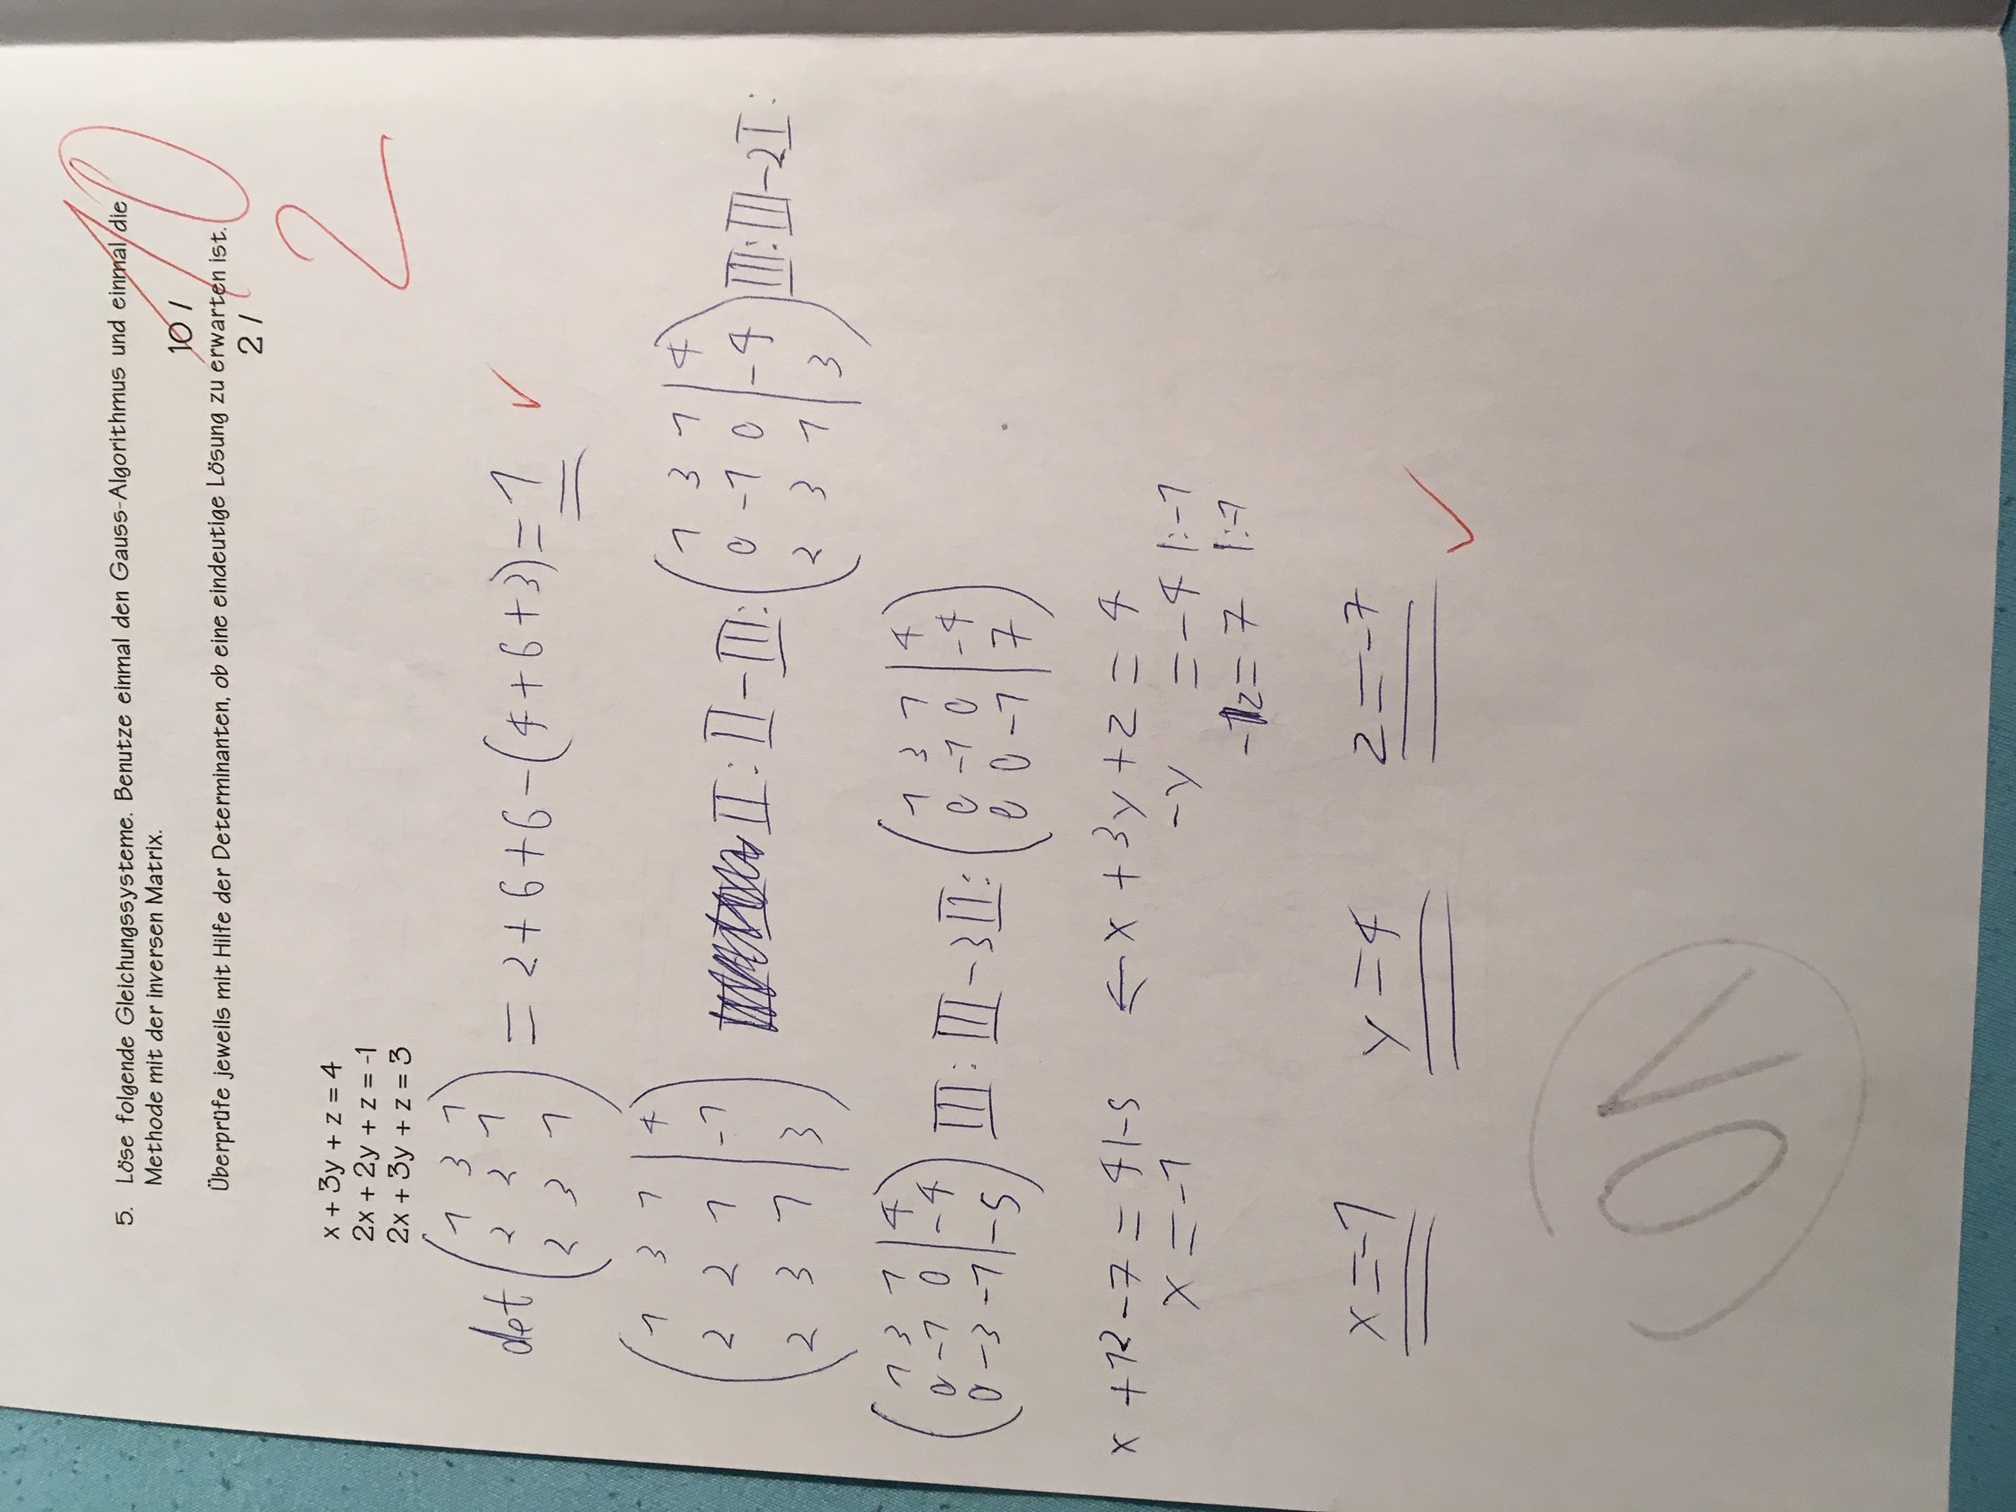 5. Löse folgende Gleichungssysteme. Benutze einmal den Gauss-Algorithmus und einmal die
Methode mit der inversen Matrix.
10 /
10
Überprüfe jeweils mit Hilfe der Determinanten, ob eine eindeutige Lösung zu erwarten ist.
2 /
2
x + 3y + z = 4
2x + 2y + z = -1
2x + 3y + z = 3
det ( 1 3 1
2 2 1
2 3 1 ) = 2 + 6 + 6 - (4 + 6 + 3) = 1 ✓
( 1 3 1 | 4
2 2 1 | -1
2 3 1 | 3 )
II: II - III:
( 1 3 1 | 4
0 -1 0 | -4
2 3 1 | 3 )
III: III - 2I:
( 1 3 1 | 4
0 -1 0 | -4
0 -3 -1 | -5 )
III: III - 3II:
( 1 3 1 | 4
0 -1 0 | -4
0 0 -1 | 7 )
x + 12 - 7 = 4 | -5 ← x + 3y + z = 4
x = -1 -y = -4 | :-1
-1z = 7 | :-1
x = -1 y = 4 z = -7 ✓